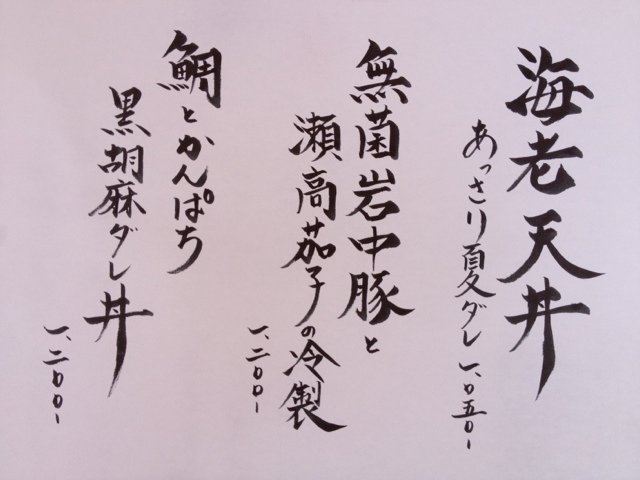 海老天丼
あっさり夏ダレ 一、〇五〇-
無菌岩中豚と
瀬高茄子の冷製
一、二〇〇-
鯛とかんぱち
黒胡麻ダレ丼
一、二〇〇-